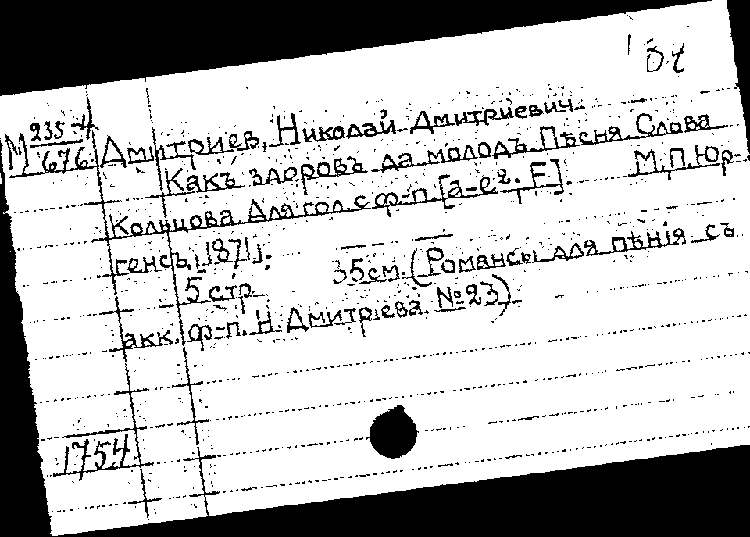 М 235-4
676
Дмитриев, Николай Дмитриевич
Какъ здоровъ да молодъ Пѣсня Слова
Кольцова. Для гол. с ф-п. [a-e². F]. М.П.Юр-
генсъ, [1871].
5 стр. 35 см. (Романсы для пѣнія съ
акк. ф-п. Н. Дмитріева. №23)
1754